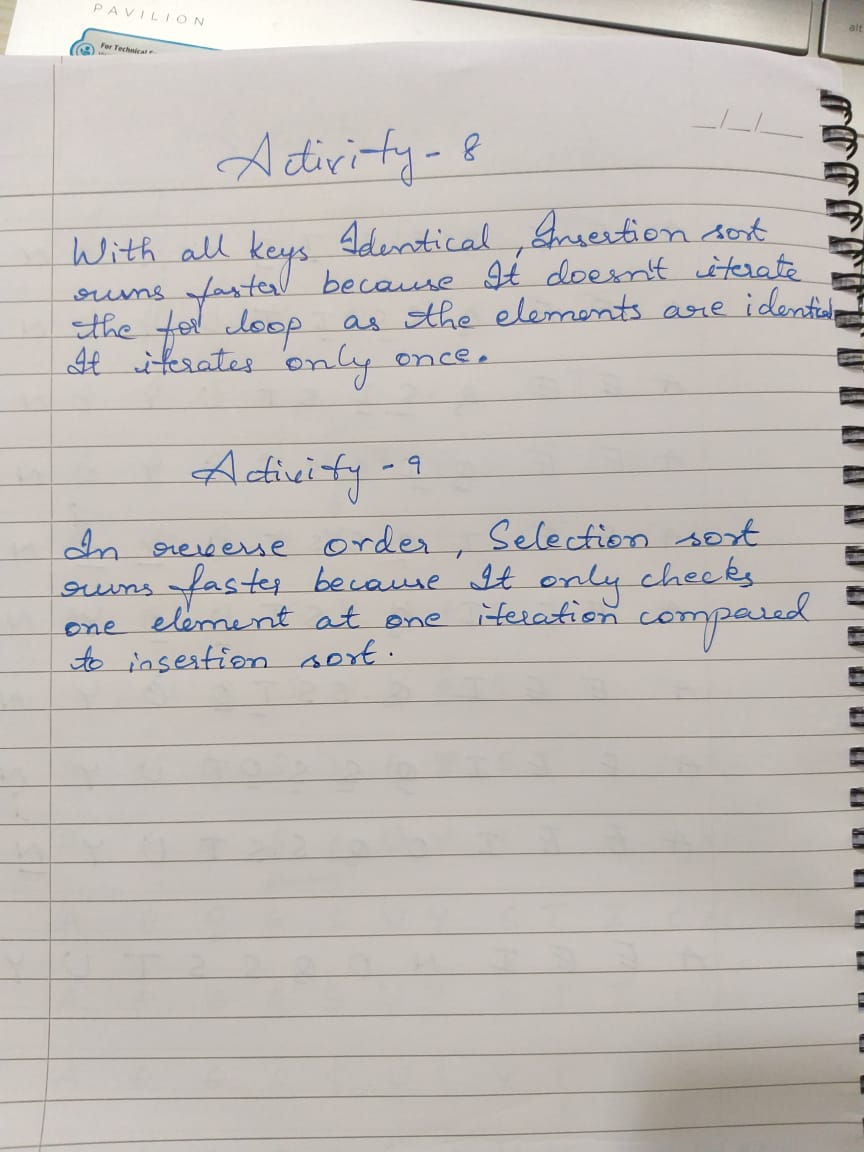 PAVILION
For Technical
alt
Activity - 8
With all keys Identical, Insertion sort
runs faster because It doesn't iterate
the for loop as the elements are identical
It iterates only once.
Activity - 9
In reverse order, Selection sort
runs faster because It only checks
one element at one iteration compared
to insertion sort.